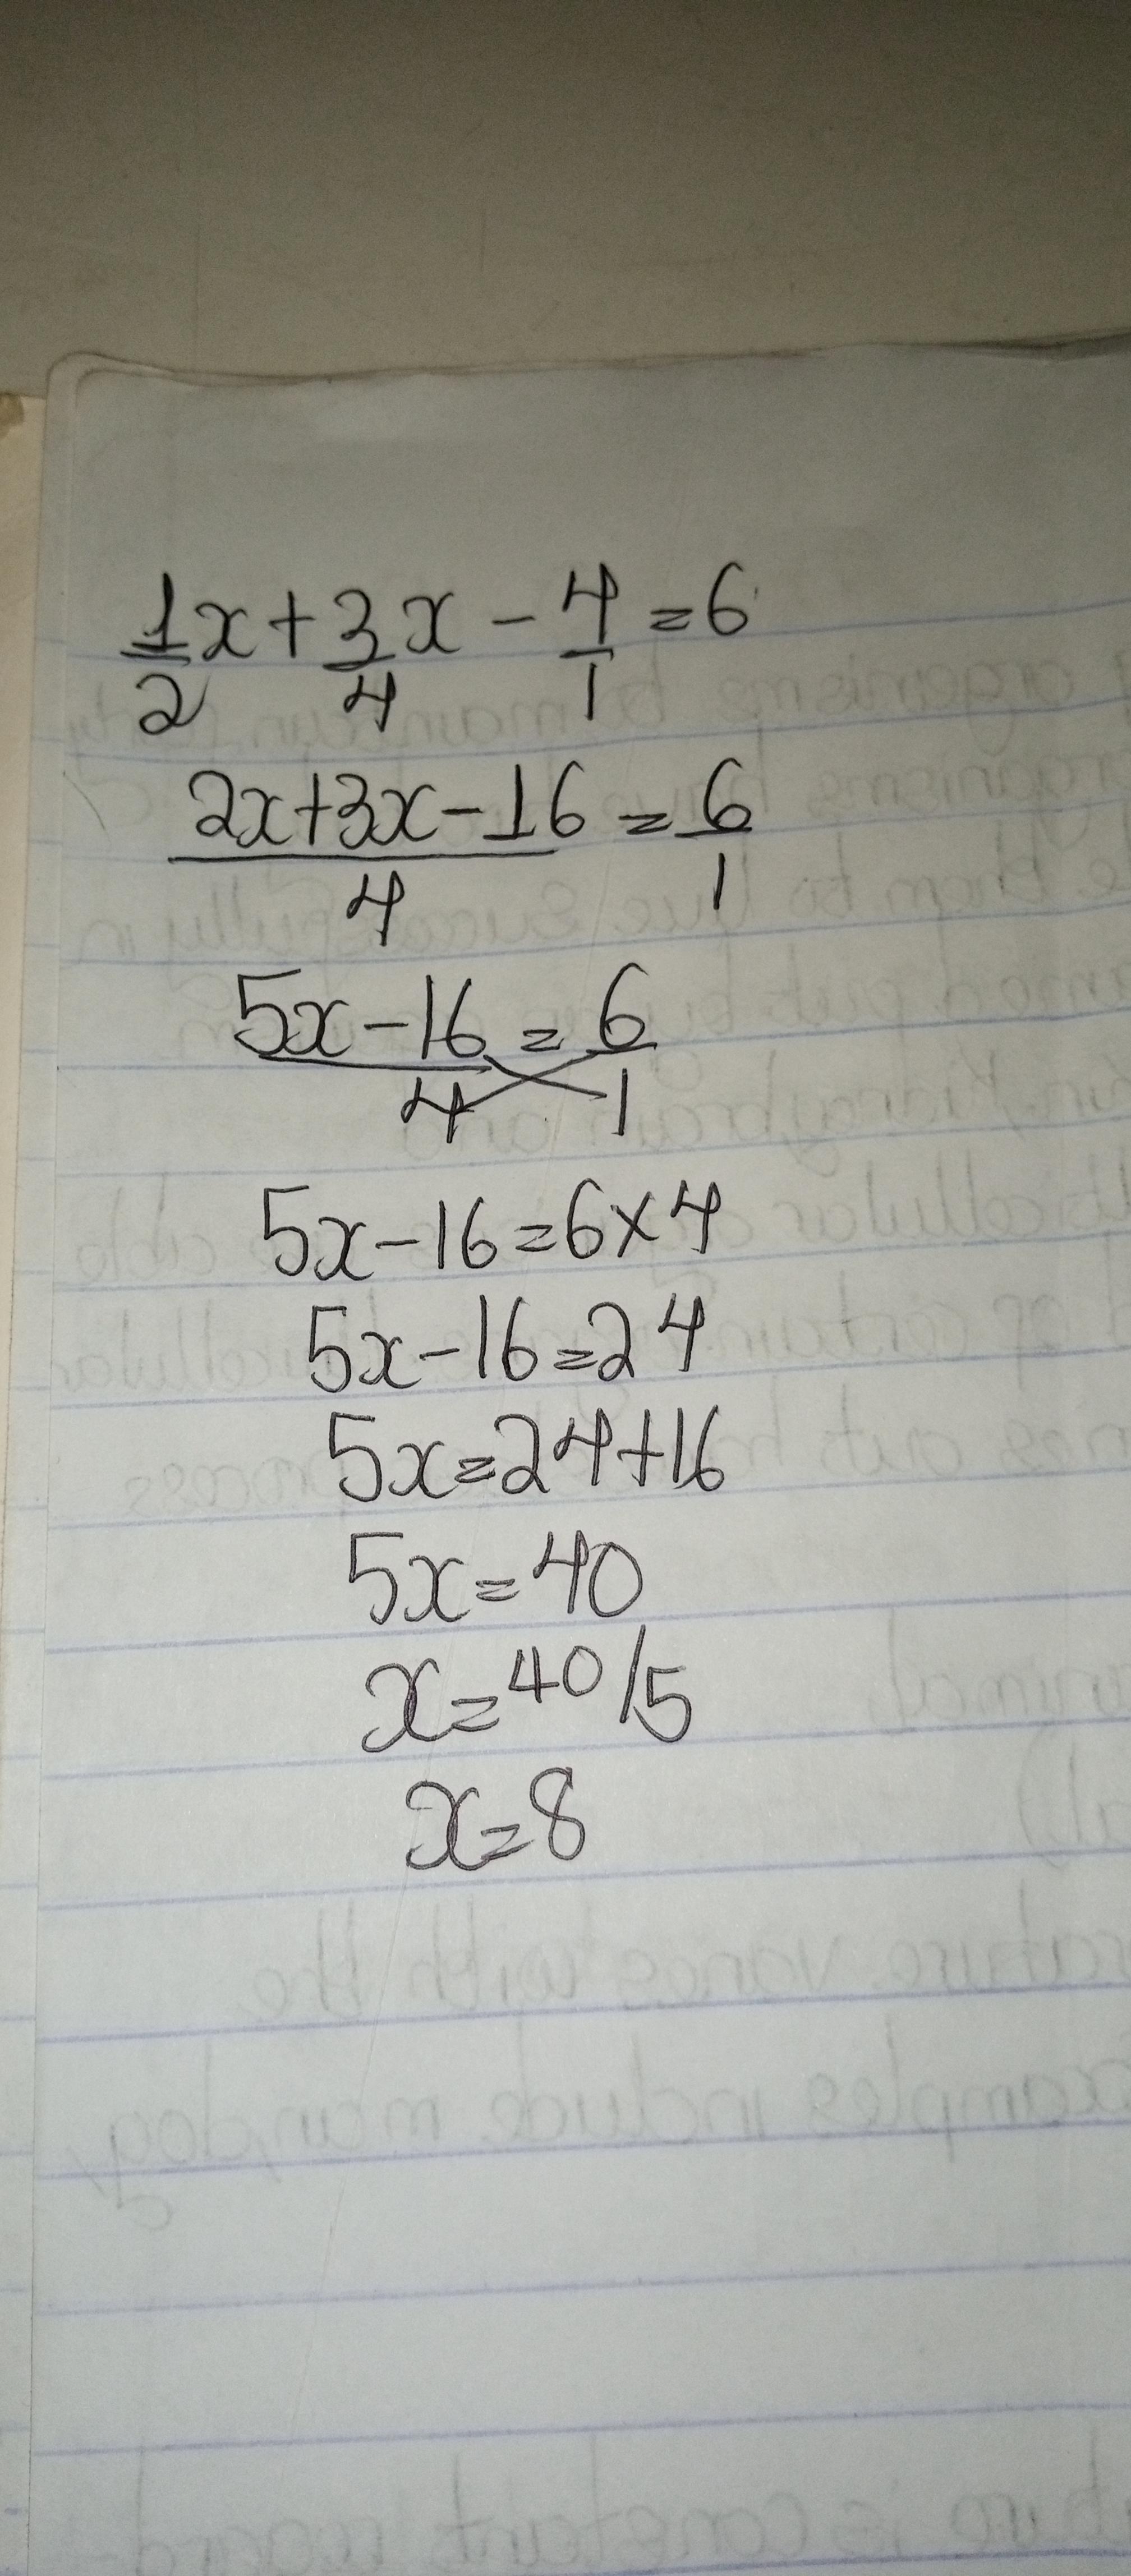 1/2 x + 3/4 x - 4/1 = 6
2x+3x-16/4 = 6/1
5x-16/4 = 6/1
5x-16=6×4
5x-16=24
5x=24+16
5x=40
x=40/5
x=8